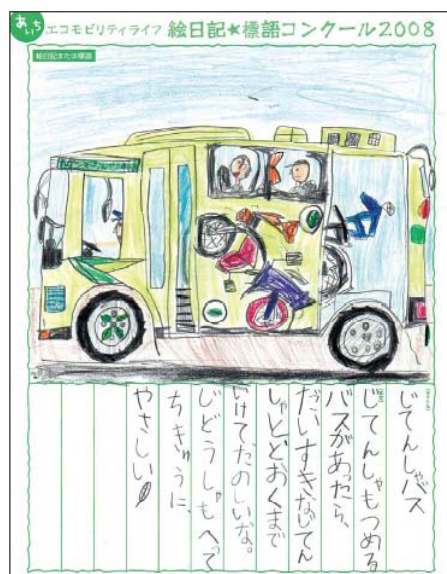 あいち エコモビリティライフ 絵日記★標語コンクール2008
絵日記または標語
じてんしゃバス
じてんしゃもつめる
バスがあったら、
だいすきなじてん
しゃととおくまで
いけてたのしいな。
じどうしゃもへって
ちきゅうに、
やさしい